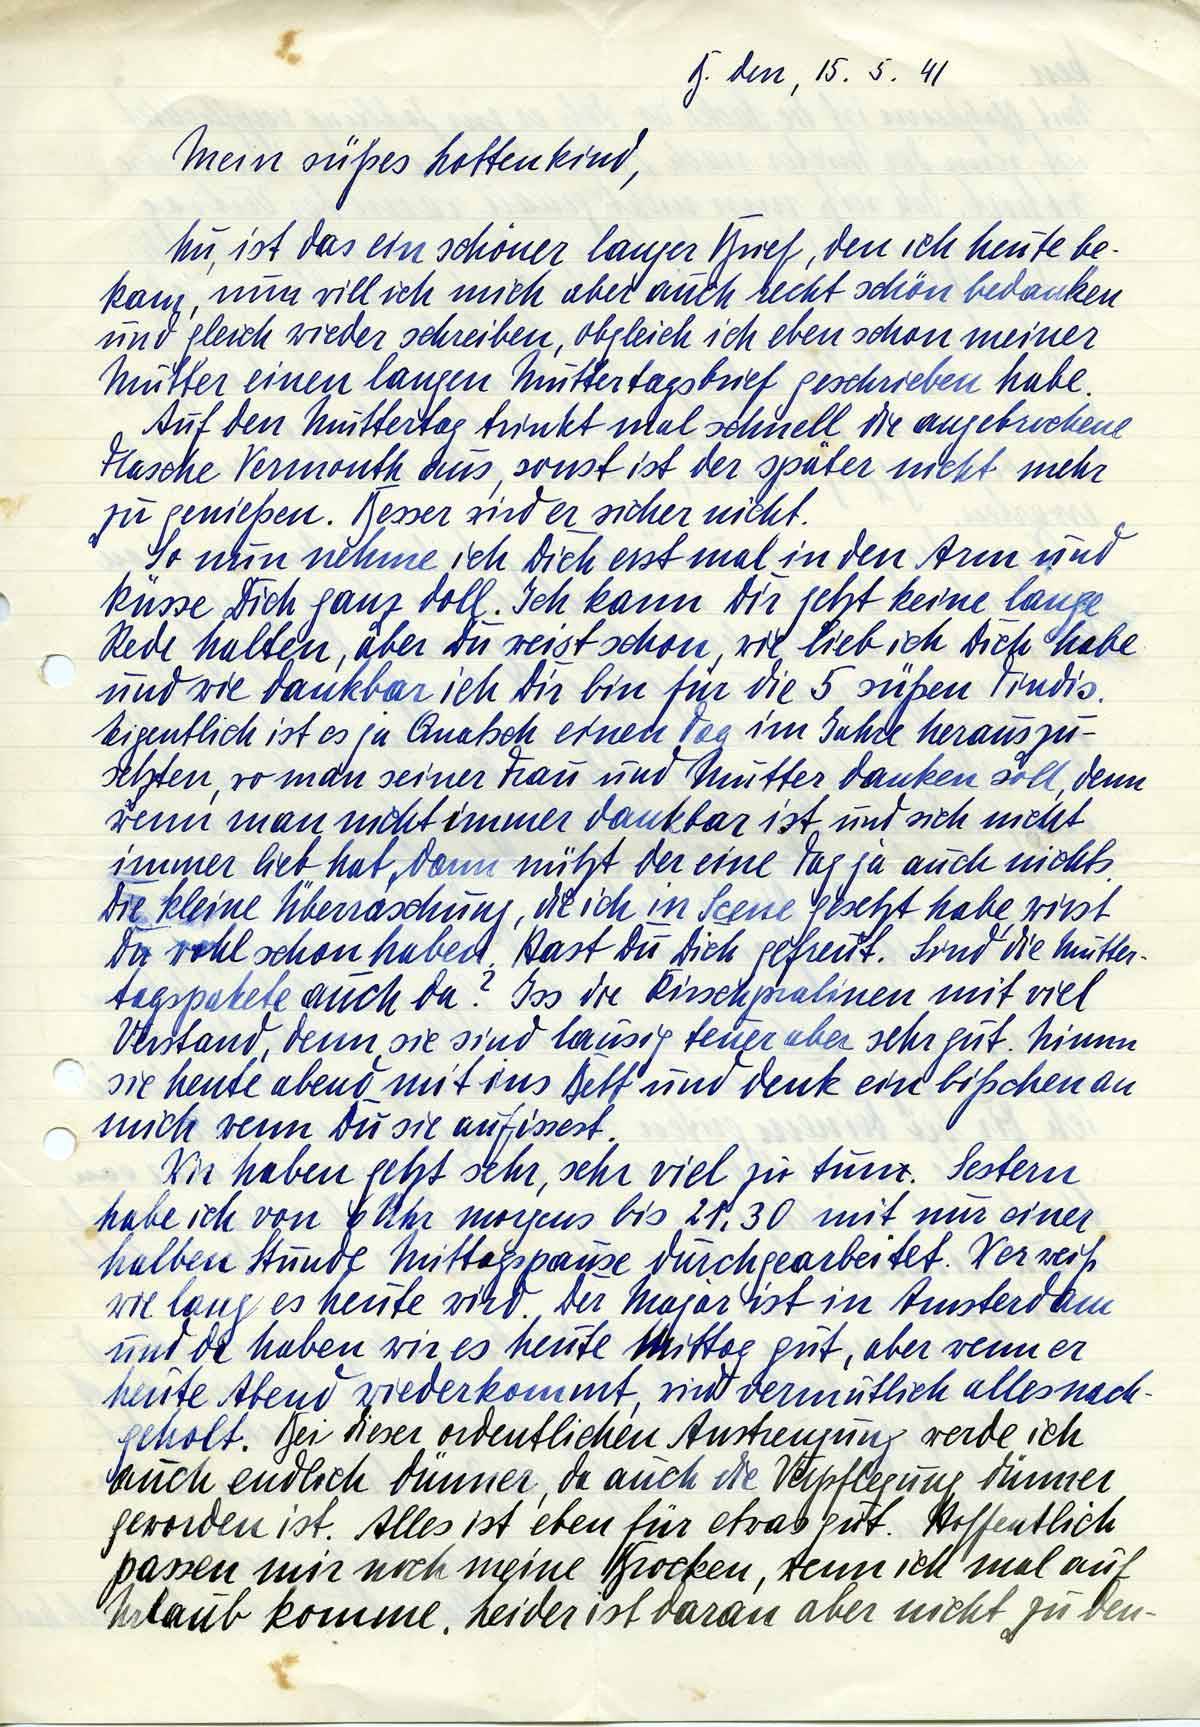 B. den, 15. 5. 41
Mein süßes Lottenkind,
Nu, ist das ein schöner langer Brief, den ich heute be-
kam, nun will ich mich aber auch recht schön bedanken
und gleich wieder schreiben, obgleich ich eben schon meiner
Mutter einen langen Muttertagsbrief geschrieben habe.
Auf den Muttertag trinkt mal schnell die angebrochene
Flasche Vermouth aus, sonst ist der später nicht mehr
zu genießen. Besser wird er sicher nicht.
So nun nehme ich Dich erst mal in den Arm und
küsse Dich ganz doll. Ich kann Dir jetzt keine lange
Rede halten, aber Du weist schon, wie lieb ich Dich habe
und wie dankbar ich Dir bin für die 5 süßen Findis.
Eigentlich ist es ja Quatsch einen Tag im Jahre herauszu-
setzten, wo man seiner Frau und Mutter danken soll, denn
wenn man nicht immer dankbar ist und sich nicht
immer lieb hat, dann nützt der eine Tag ja auch nichts.
Die kleine Überraschung, die ich in Scene gesetzt habe, wirst
Du wohl schon haben. Hast Du Dich gefreut. Sind die Mutter-
tagspakete auch da? Iss die Kirschpralinen mit viel
Verstand, denn sie sind lausig teuer aber sehr gut. Nimm
sie heute abend mit ins Bett und denk ein bißchen an
mich wenn Du sie aufissest.
Wir haben jetzt sehr, sehr viel zu tun. Gestern
habe ich von 6 Uhr morgens bis 21.30 mit nur einer
halben Stunde Mittagspause durchgearbeitet. Wer weiß
wie lang es heute wird. Der Major ist in Amsterdam
und da haben wir es heute Mittag gut, aber wenn er
heute Abend wiederkommt, wird vermutlich alles nach-
geholt. Bei dieser ordentlichen Anstrengung werde ich
auch endlich dünner, da auch die Verpflegung dünner
geworden ist. Alles ist eben für etwas gut. Hoffentlich
passen mir noch meine Brocken, wenn ich mal auf
Urlaub komme. Leider ist daran aber nicht zu den-